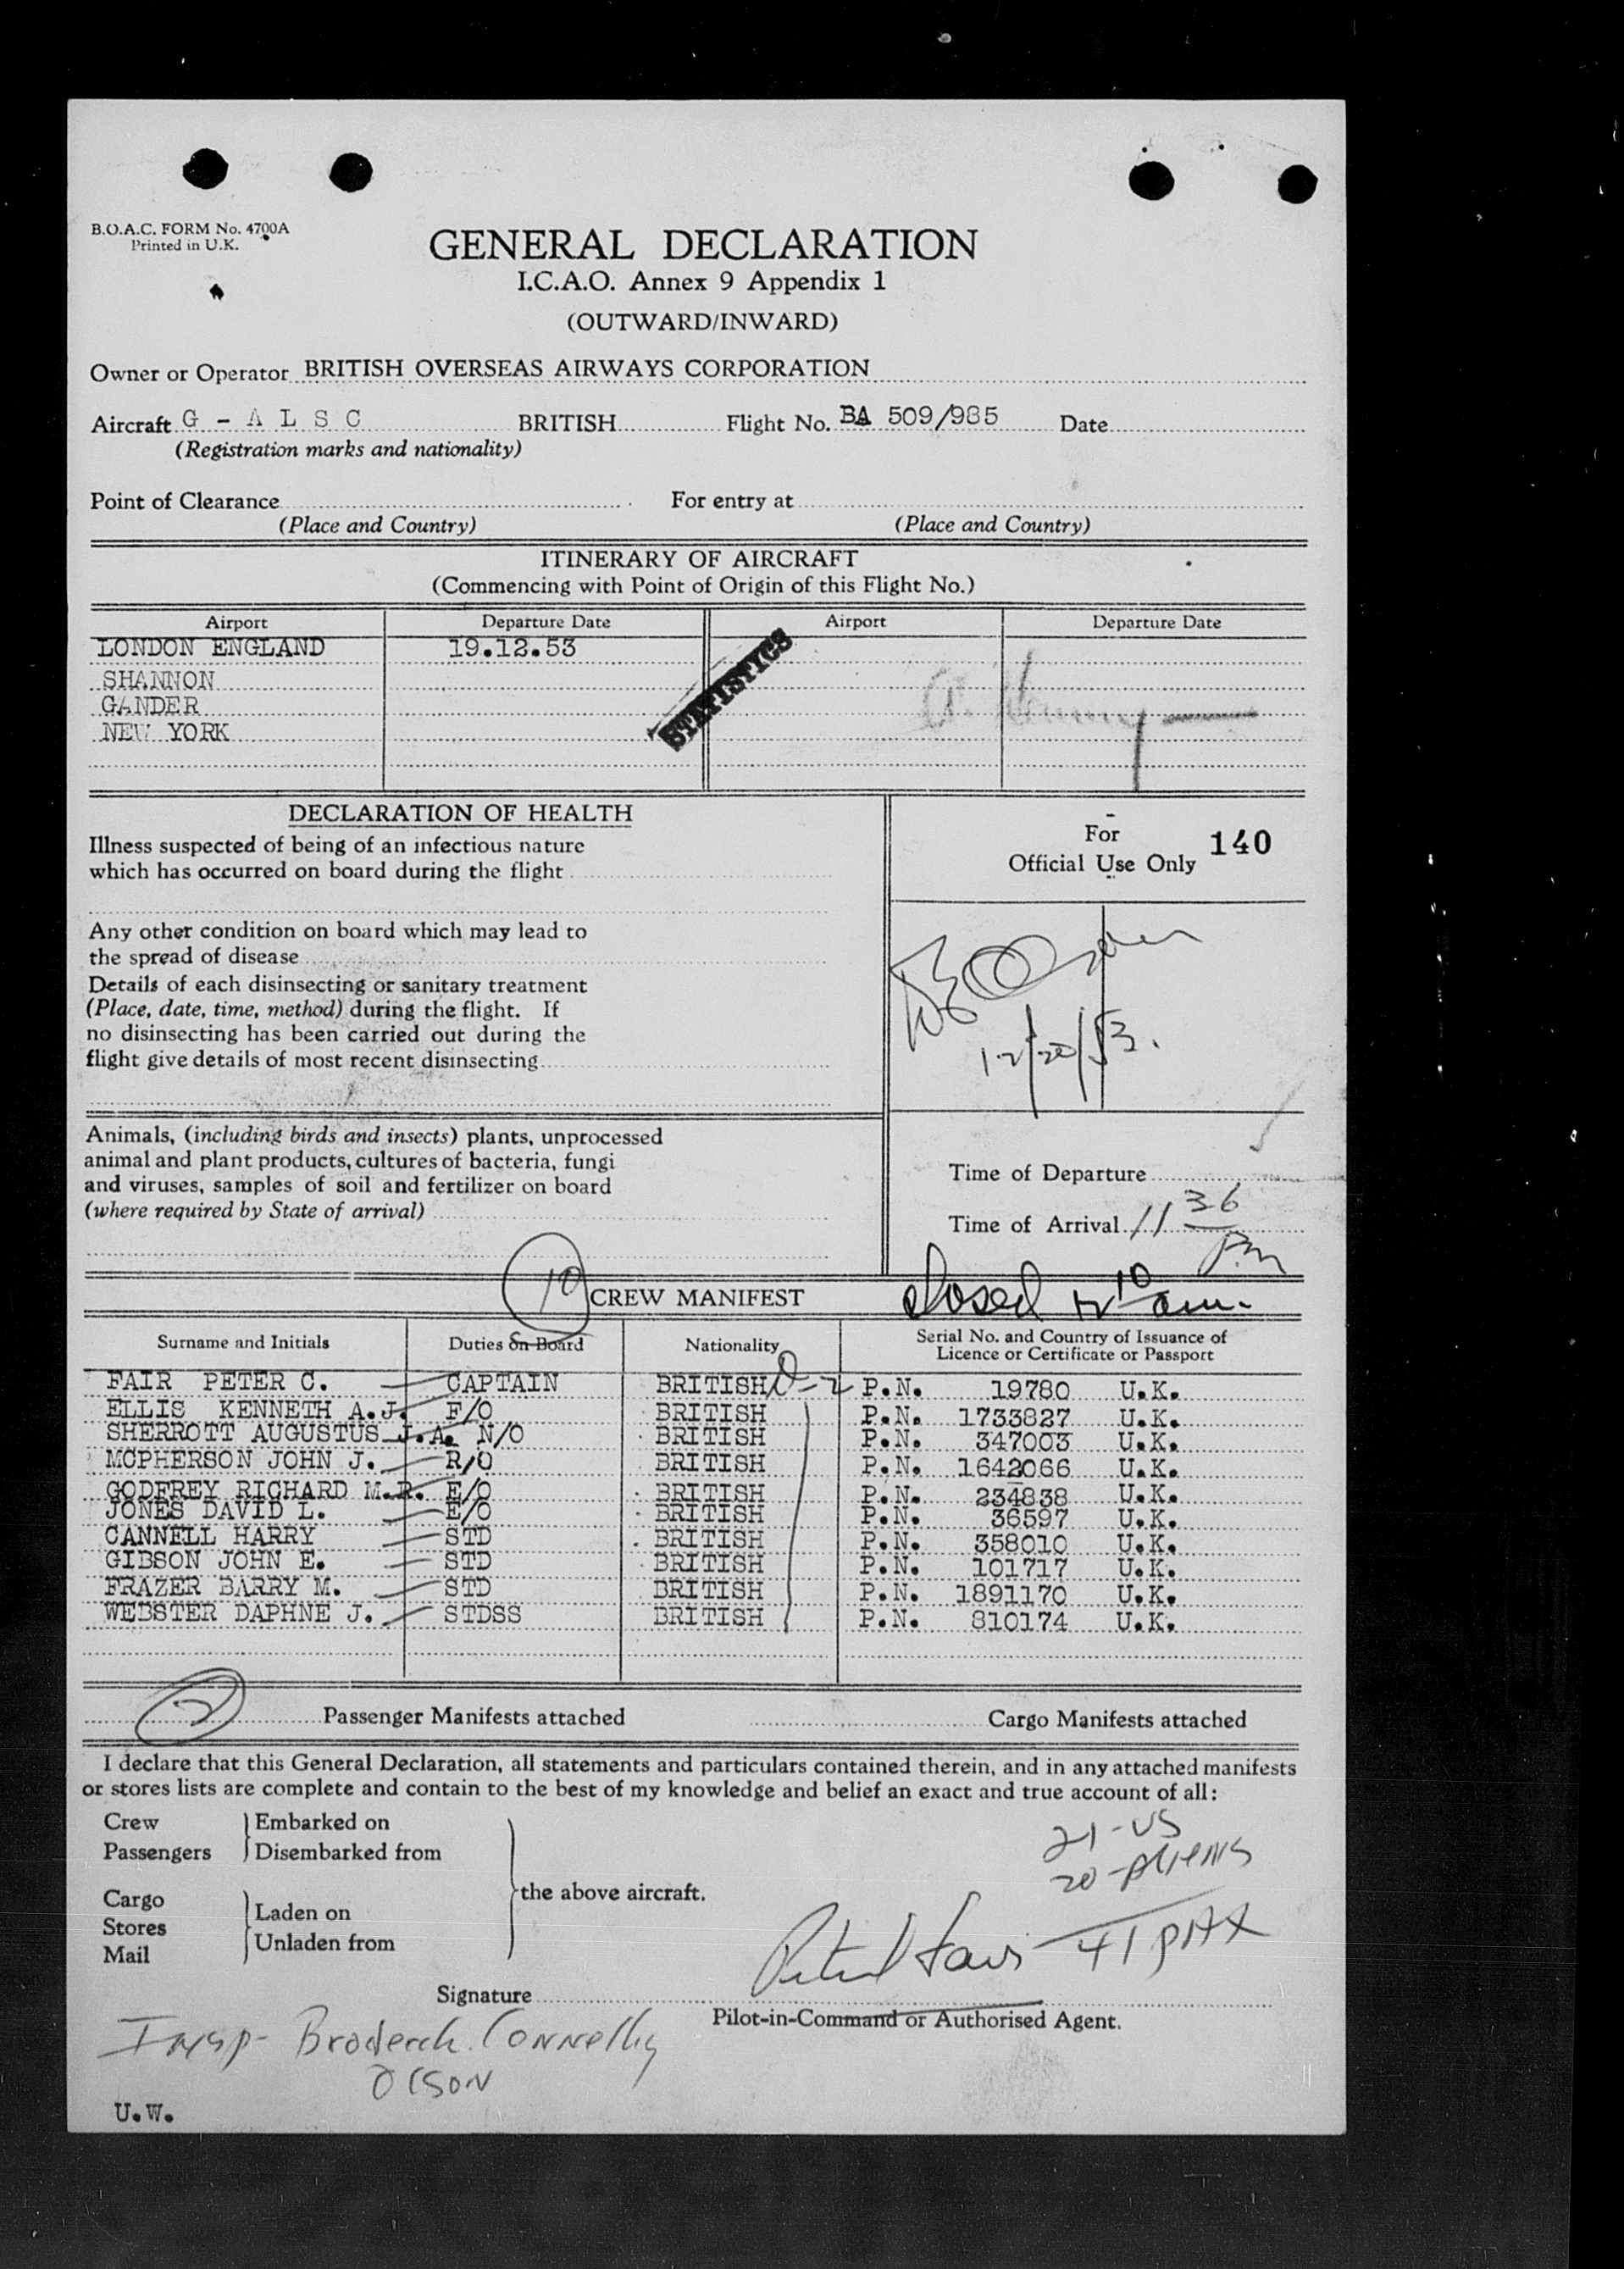 B.O.A.C. FORM No. 4700A
Printed in U.K.
GENERAL DECLARATION
I.C.A.O. Annex 9 Appendix 1
(OUTWARD/INWARD)
Owner or Operator BRITISH OVERSEAS AIRWAYS CORPORATION
Aircraft G - A L S C BRITISH Flight No. BA 509/985 Date
(Registration marks and nationality)
Point of Clearance For entry at
(Place and Country) (Place and Country)
ITINERARY OF AIRCRAFT
(Commencing with Point of Origin of this Flight No.)
Airport Departure Date Airport Departure Date
LONDON ENGLAND 19.12.53
SHANNON
GANDER
NEW YORK
STATISTICS
DECLARATION OF HEALTH
Illness suspected of being of an infectious nature
which has occurred on board during the flight
Any other condition on board which may lead to
the spread of disease
Details of each disinsecting or sanitary treatment
(Place, date, time, method) during the flight. If
no disinsecting has been carried out during the
flight give details of most recent disinsecting
For
Official Use Only 140
12/20/53.
Animals, (including birds and insects) plants, unprocessed
animal and plant products, cultures of bacteria, fungi
and viruses, samples of soil and fertilizer on board
(where required by State of arrival)
Time of Departure
Time of Arrival 11 36
P.m
10 CREW MANIFEST closed 12 10 am.
Surname and Initials Duties on Board Nationality Serial No. and Country of Issuance of
Licence or Certificate or Passport
FAIR PETER C. CAPTAIN BRITISH D-2 P.N. 19780 U.K.
ELLIS KENNETH A.J. F/O BRITISH P.N. 1733827 U.K.
SHERROTT AUGUSTUS J.A. N/O BRITISH P.N. 347003 U.K.
MCPHERSON JOHN J. R/O BRITISH P.N. 1642066 U.K.
GODFREY RICHARD M.R. E/O BRITISH P.N. 234838 U.K.
JONES DAVID L. E/O BRITISH P.N. 36597 U.K.
CANNELL HARRY STD BRITISH P.N. 358010 U.K.
GIBSON JOHN E. STD BRITISH P.N. 101717 U.K.
FRAZER BARRY M. STD BRITISH P.N. 1891170 U.K.
WEBSTER DAPHNE J. STDSS BRITISH P.N. 810174 U.K.
2 Passenger Manifests attached Cargo Manifests attached
I declare that this General Declaration, all statements and particulars contained therein, and in any attached manifests
or stores lists are complete and contain to the best of my knowledge and belief an exact and true account of all:
Crew Embarked on
Passengers Disembarked from
the above aircraft.
Cargo Laden on
Stores
Mail Unladen from
21-US
20-Aliens
41 PAX
Signature
Pilot-in-Command or Authorised Agent.
Insp- Broderick. Connelly
Olson
U.W.